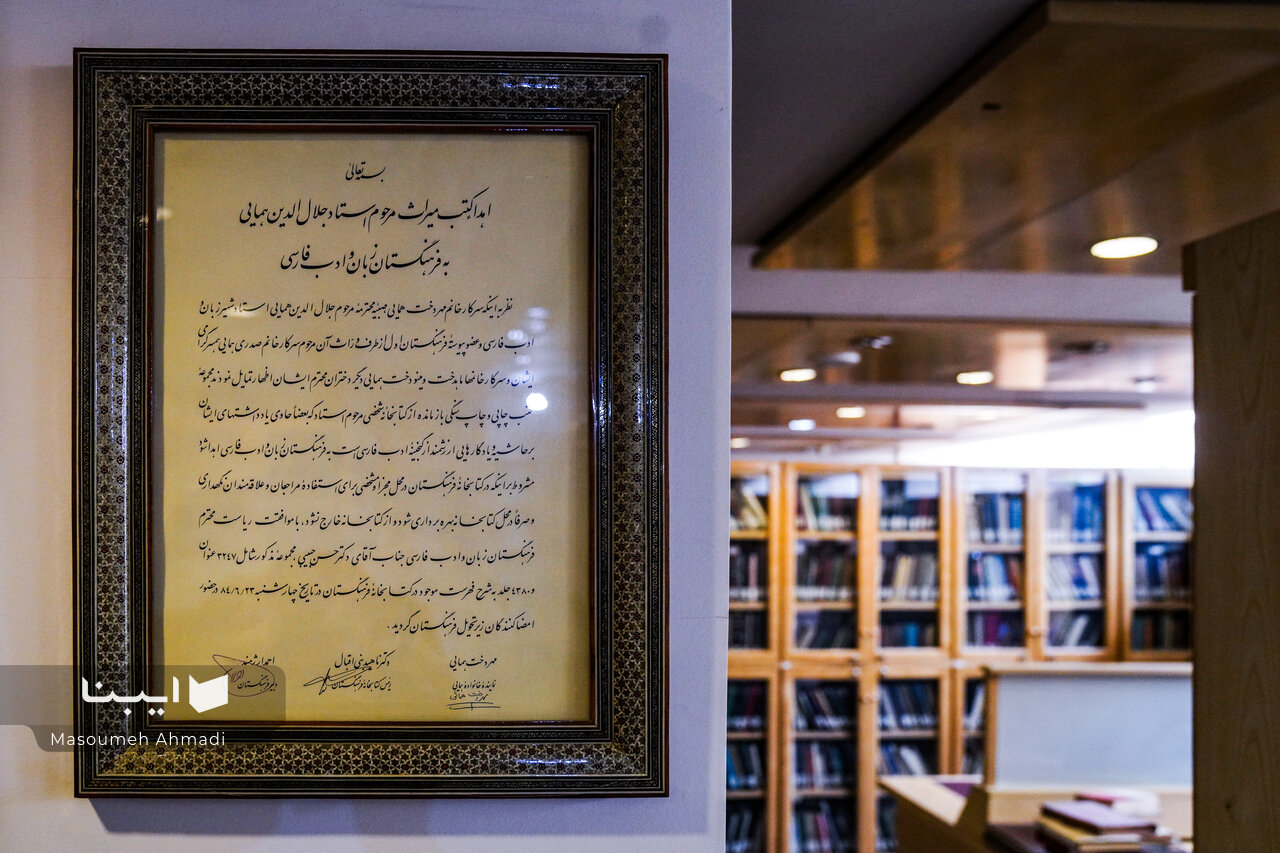 بسمه تعالی
اهدا کتب میراث مرحوم استاد جلال الدین همایی
به فرهنگستان زبان و ادب فارسی
نظر به اینکه سرکار خانم مهردخت همایی صبیهٔ محترمهٔ مرحوم جلال الدین همایی استاد شهیر زبان و
ادب فارسی و عضو پیوستهٔ فرهنگستان اول از طرف وراث آن مرحوم سرکار خانم صدری همایی همسر گرامی
ایشان و سرکار خانمها ماهدخت و مینودخت همایی دیگر دختران محترم ایشان اظهار تمایل نمودند مجموعهٔ
کتب چاپی و چاپ سنگی بازمانده از کتابخانهٔ شخصی مرحوم استاد که بعضاً حاوی یادداشتهای ایشان
بر حاشیه و یادگارهایی ارزشمند از گنجینهٔ ادب فارسی است به فرهنگستان زبان و ادب فارسی اهدا شود
مشروط بر اینکه در کتابخانهٔ فرهنگستان در محل مجزا و مشخصی برای استفادهٔ مراجعان و علاقه‌مندان نگهداری
و صرفاً در محل کتابخانه بهره برداری شود و از کتابخانه خارج نشود، با موافقت ریاست محترم
فرهنگستان زبان و ادب فارسی جناب آقای دکتر حسن حبیبی مجموعهٔ مذکور شامل ۳۲۴۷ عنوان
و ۴۳۸۰ جلد به شرح فهرست موجود در کتابخانهٔ فرهنگستان در تاریخ چهارشنبه ۸۴/۶/۲۳ در حضور
امضا کنندگان زیر تحویل فرهنگستان گردید.
مهردخت همایی دکتر ناهید بنی اقبال احمد ارژمند
نمایندهٔ خانوادهٔ همایی رئیس کتابخانهٔ فرهنگستان دبیر فرهنگستان
ایبنا
Masoumeh Ahmadi